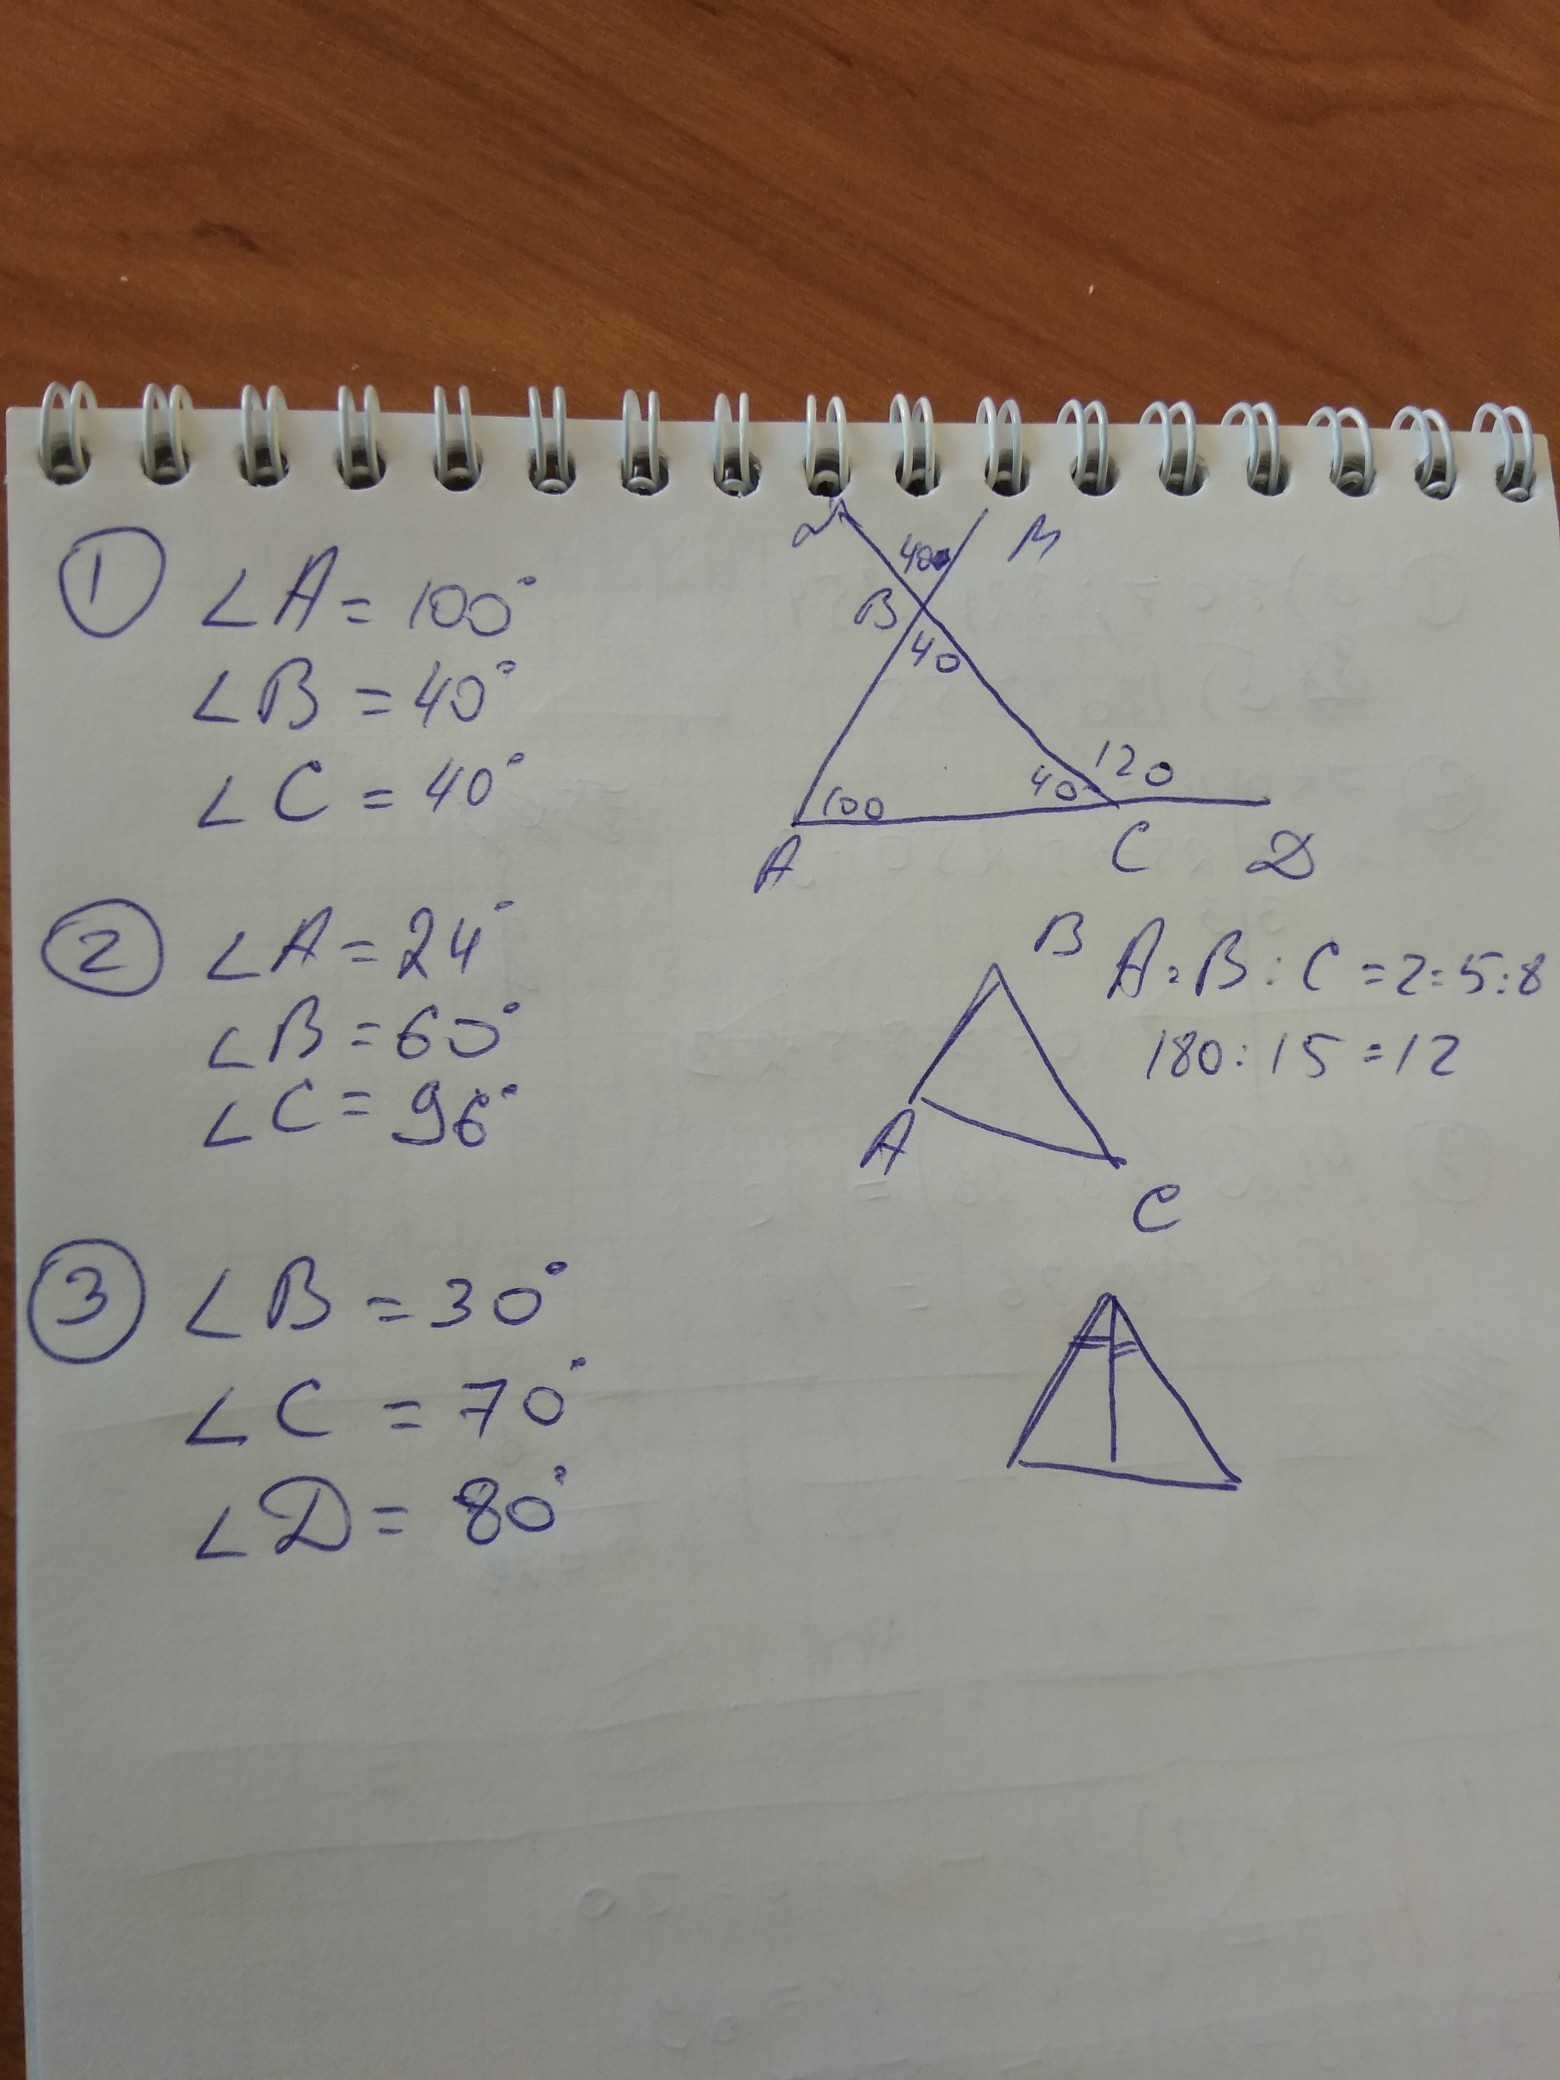 1 ∠A = 100°
∠B = 40°
∠C = 40°
M
40
B
40
120
40
100
A
C
D
2 ∠A = 24°
∠B = 60°
∠C = 96°
B
A:B:C=2:5:8
180:15=12
A
C
3 ∠B = 30°
∠C = 70°
∠D = 80°